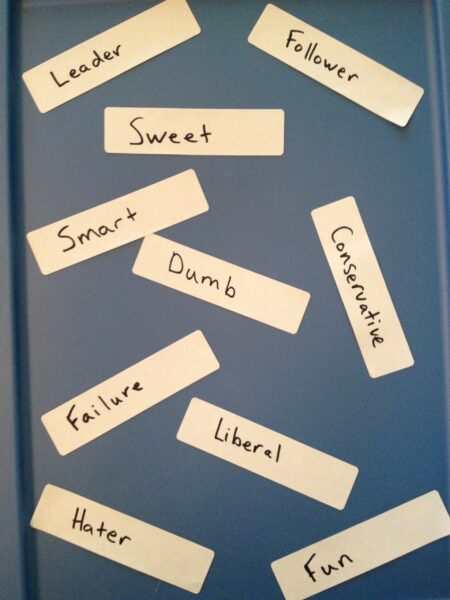 Leader
Follower
Sweet
Smart
Dumb
Conservative
Failure
Liberal
Hater
Fun